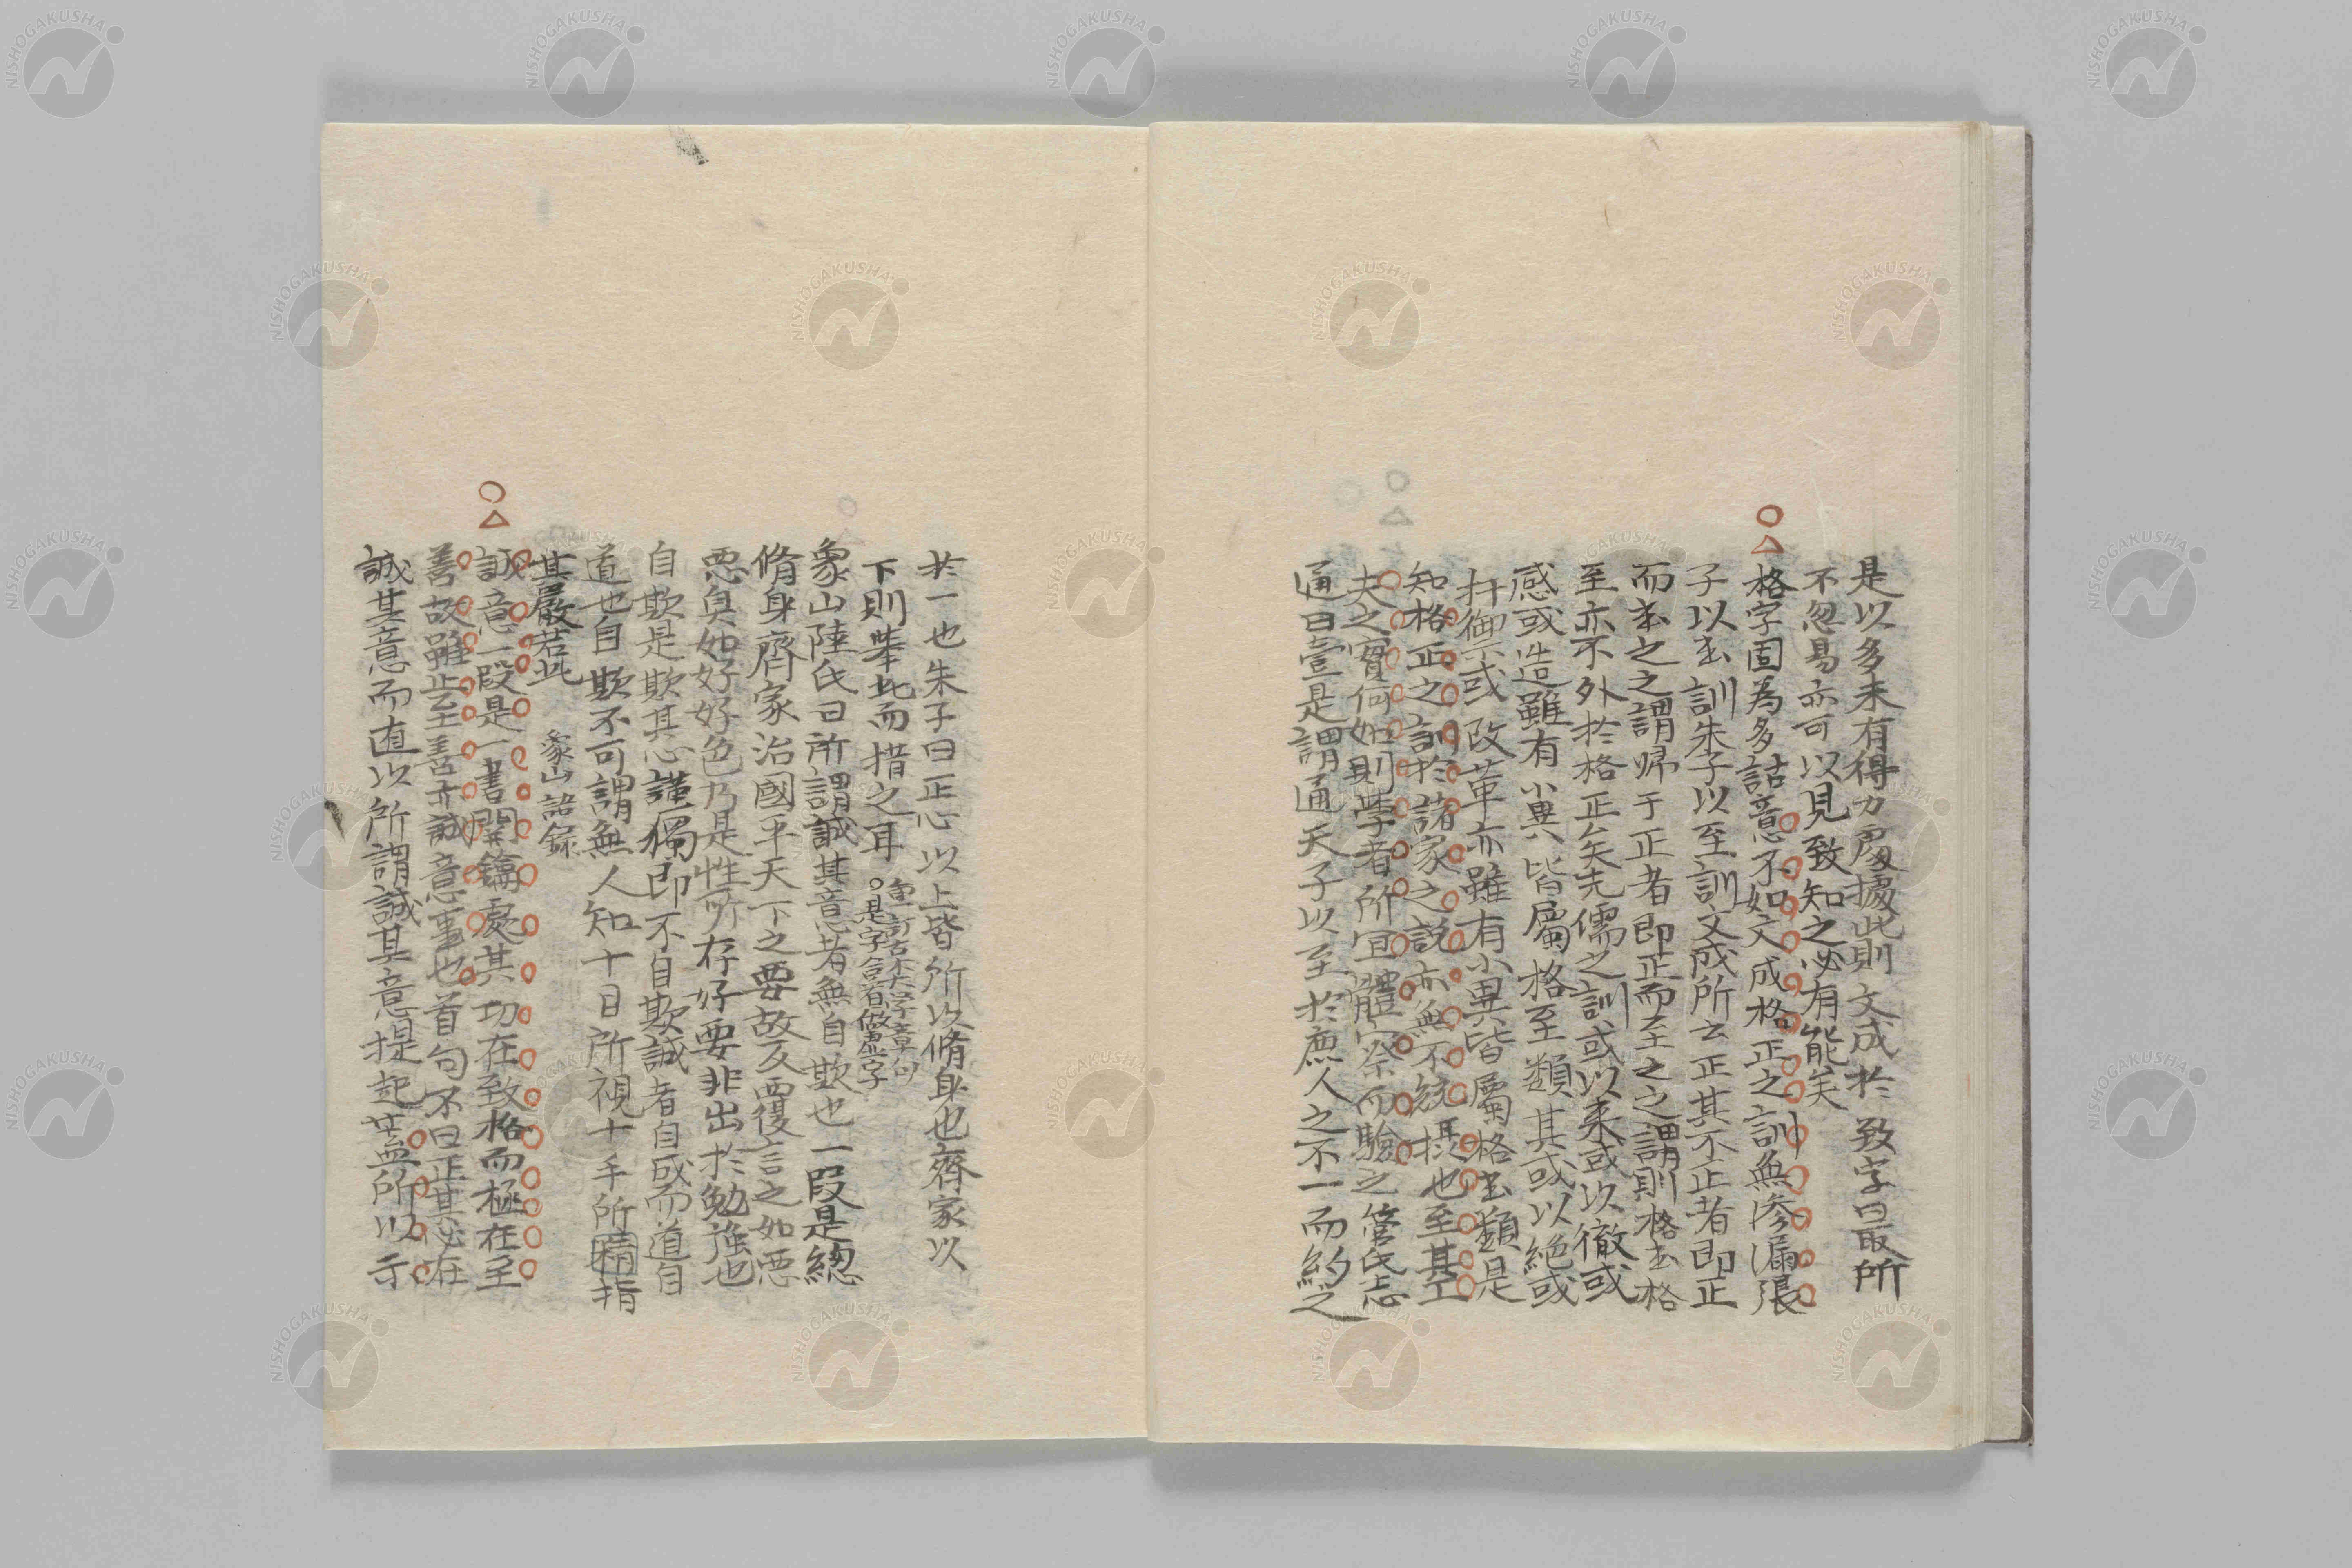 是以多未有得力處據此則文成於致字曰最所
不忽易亦可以見致知之必有能矣
格字固為多詁意不如文成格正之訓無滲漏張
子以去訓朱子以至訓文成所云正其不正者即正
而去之之謂歸于正者即正而至之之謂則格去格
至亦不外於格正矣先儒之訓或以来或以徹或
感或造雖有小異皆屬格至類其或以絶或
扞御或改革亦雖有小異皆屬格去類是
知格正之訓於諸家之説亦無不統摂也至其工
夫之實何如則学者所宜體察而驗之管氏志
通曰壹是謂通天子以至於庶人之不一而約之
於一也朱子曰正心以上皆所以脩身也齊家以
下則舉此而措之耳
重訂古本大学章句
○是字合看做虚字
象山陸氏曰所謂誠其意者無自欺也一段是総
脩身齊家治國平天下之要故反覆言之如悪
悪臭如好好色乃是性所存好要非出於勉強也
自欺是欺其心謹獨即不自欺誠者自成而道自
道也自欺不可謂無人知十目所視十手所精指
其嚴若此 象山語録
誠意一段是一書開鑰處其功在致格而極在至
善故雖止至善亦誠意事也首句不曰正其心在
誠其意而直以所謂誠其意提起盖所以示
NISHOGAKUSHA